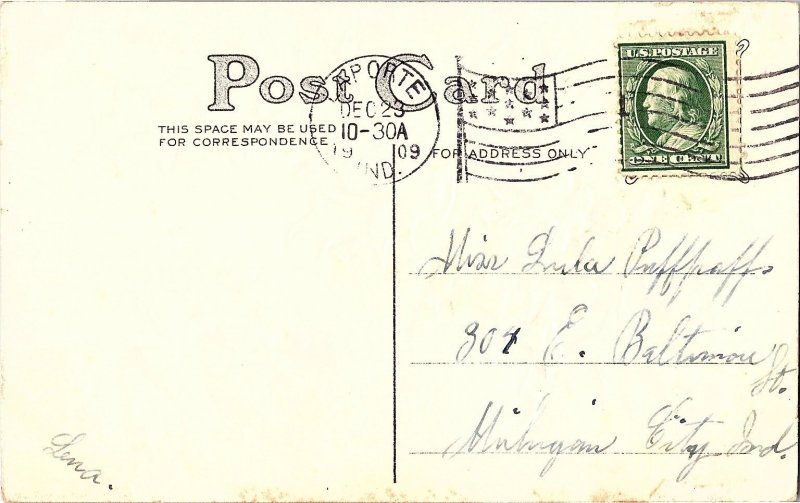 Post Card
THIS SPACE MAY BE USED
FOR CORRESPONDENCE
FOR ADDRESS ONLY
LAPORTE
DEC 23
10-30A
1909
IND.
U.S. POSTAGE
ONE CENT
Miss Lula Puffpaff.
307 E. Baltimore
St.
Michigan City Ind.
Lena.